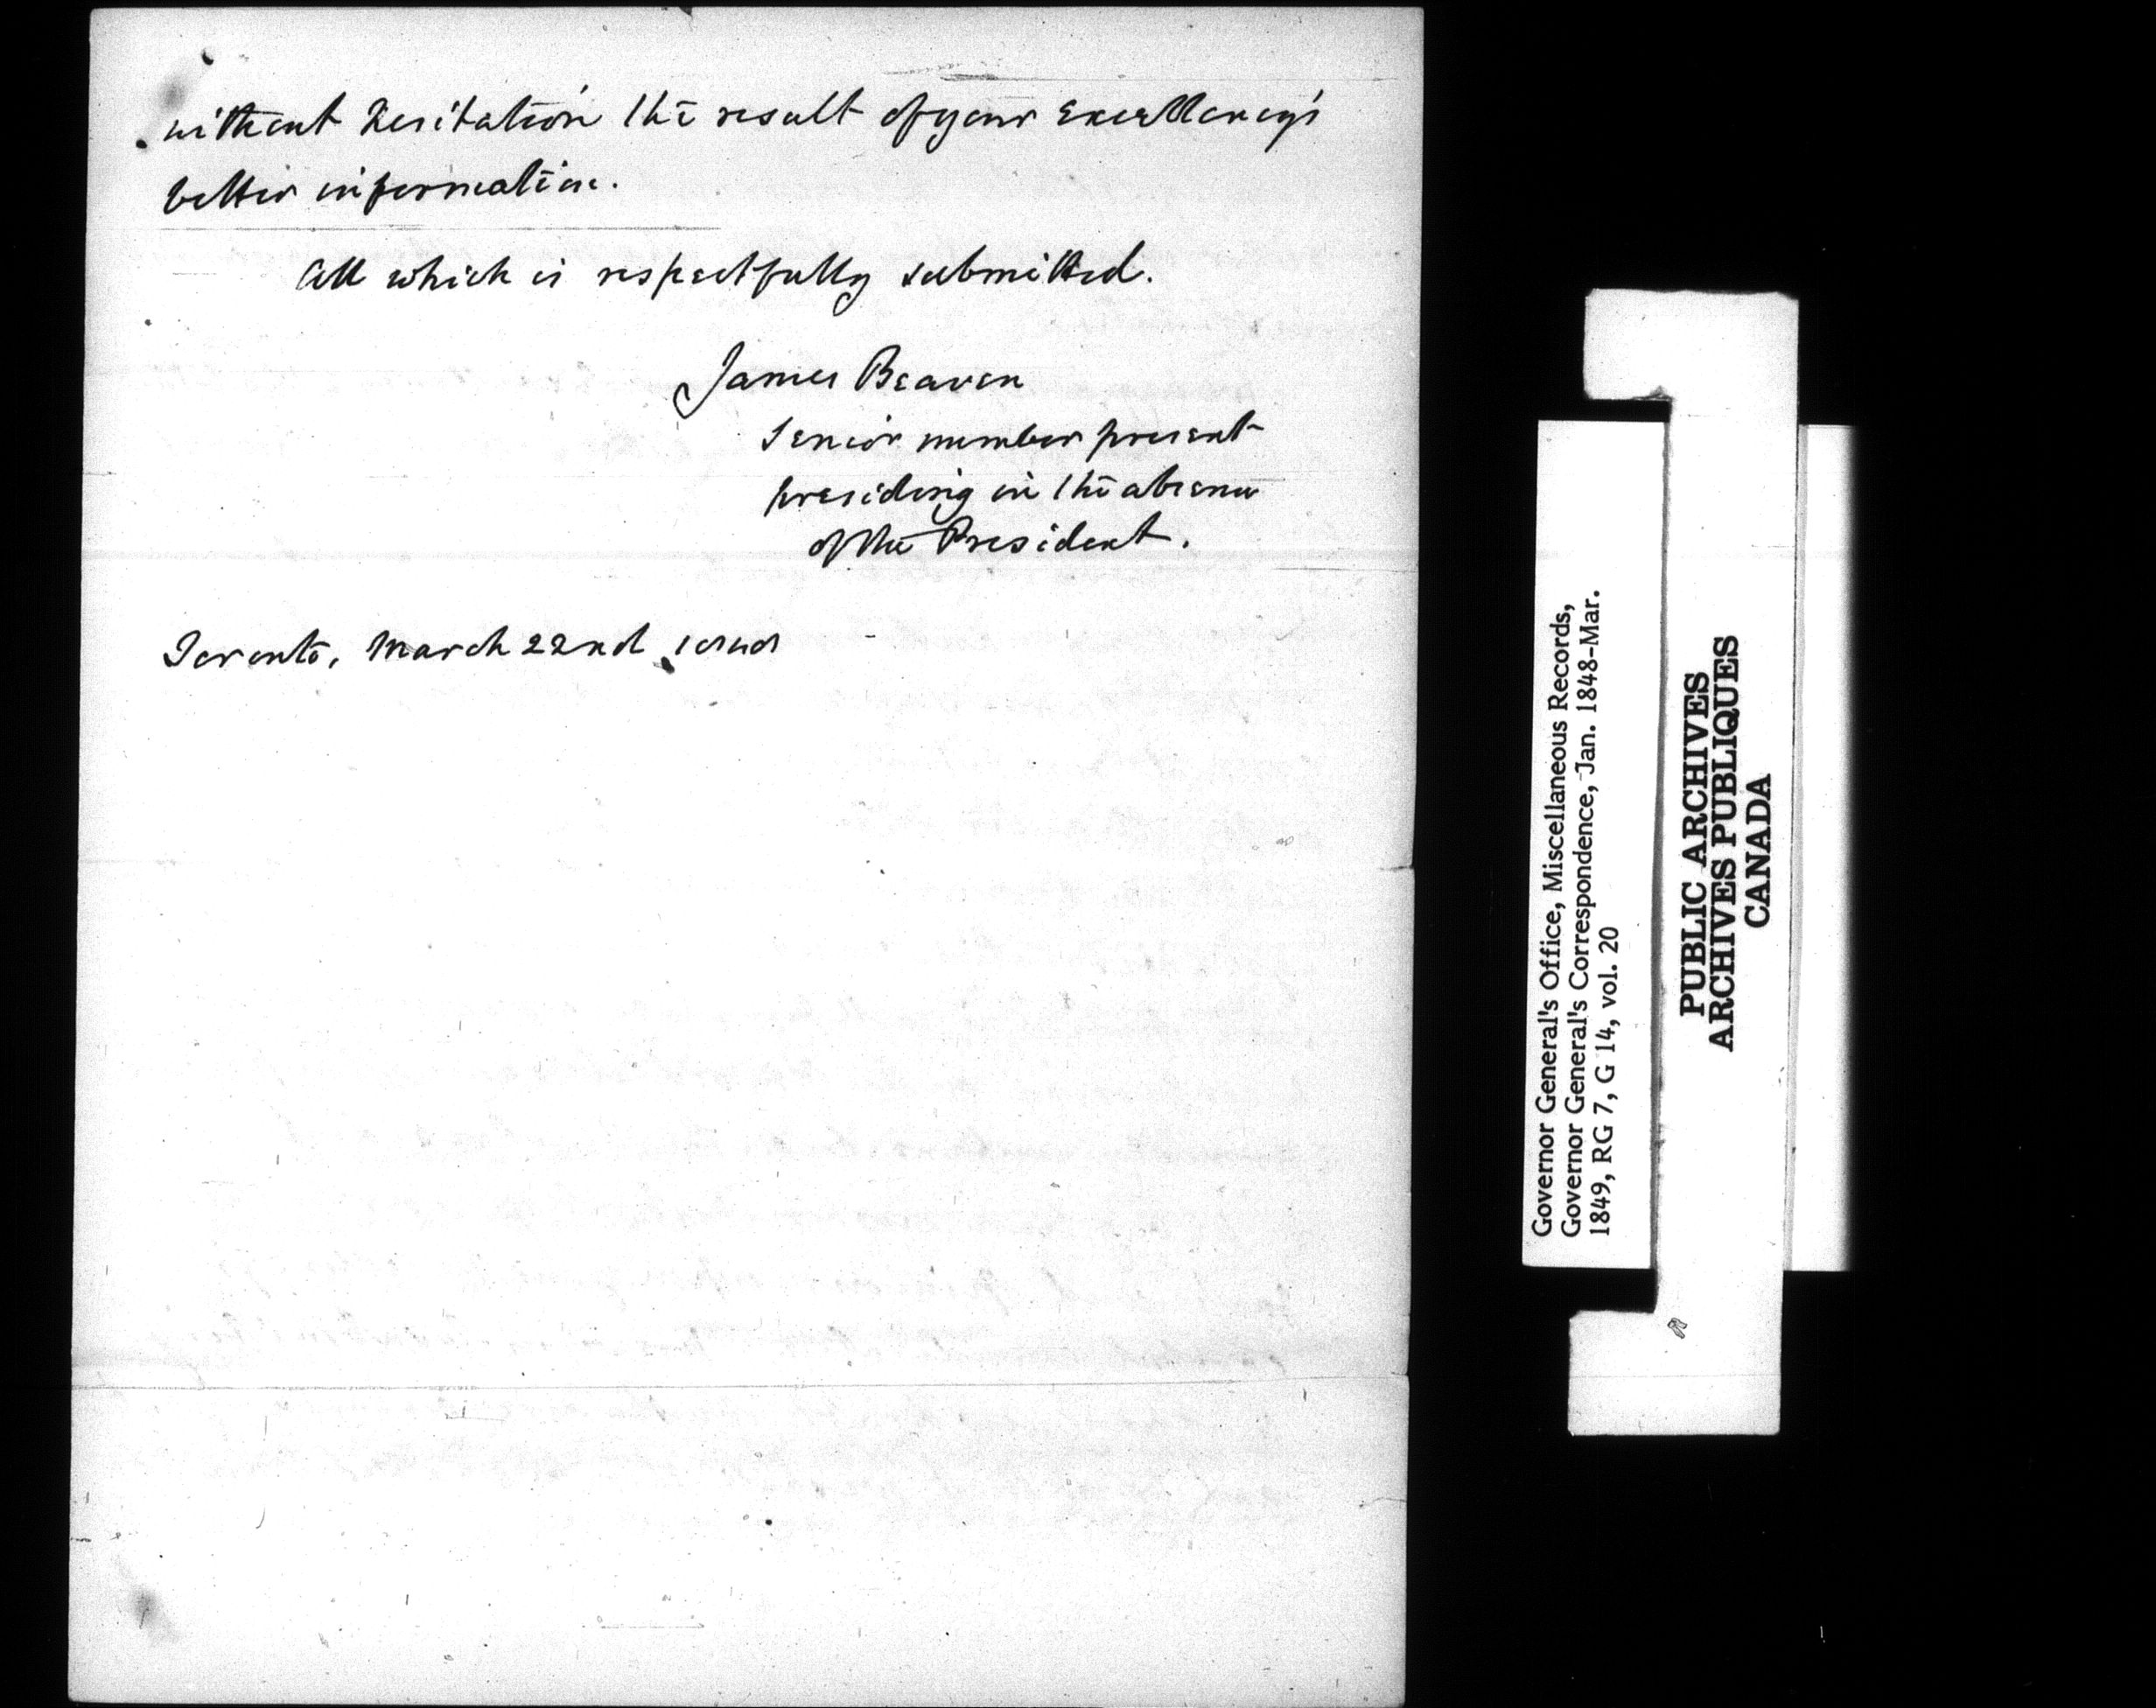 without hesitation the result of your Excellency's
better information.
All which is respectfully submitted.
James Beaven
Senior member present
presiding in the absence
of the President.
Toronto, March 22nd 1848
Governor General's Office, Miscellaneous Records,
Governor General's Correspondence, Jan. 1848-Mar.
1849, RG 7, G 14, vol. 20
PUBLIC ARCHIVES
ARCHIVES PUBLIQUES
CANADA